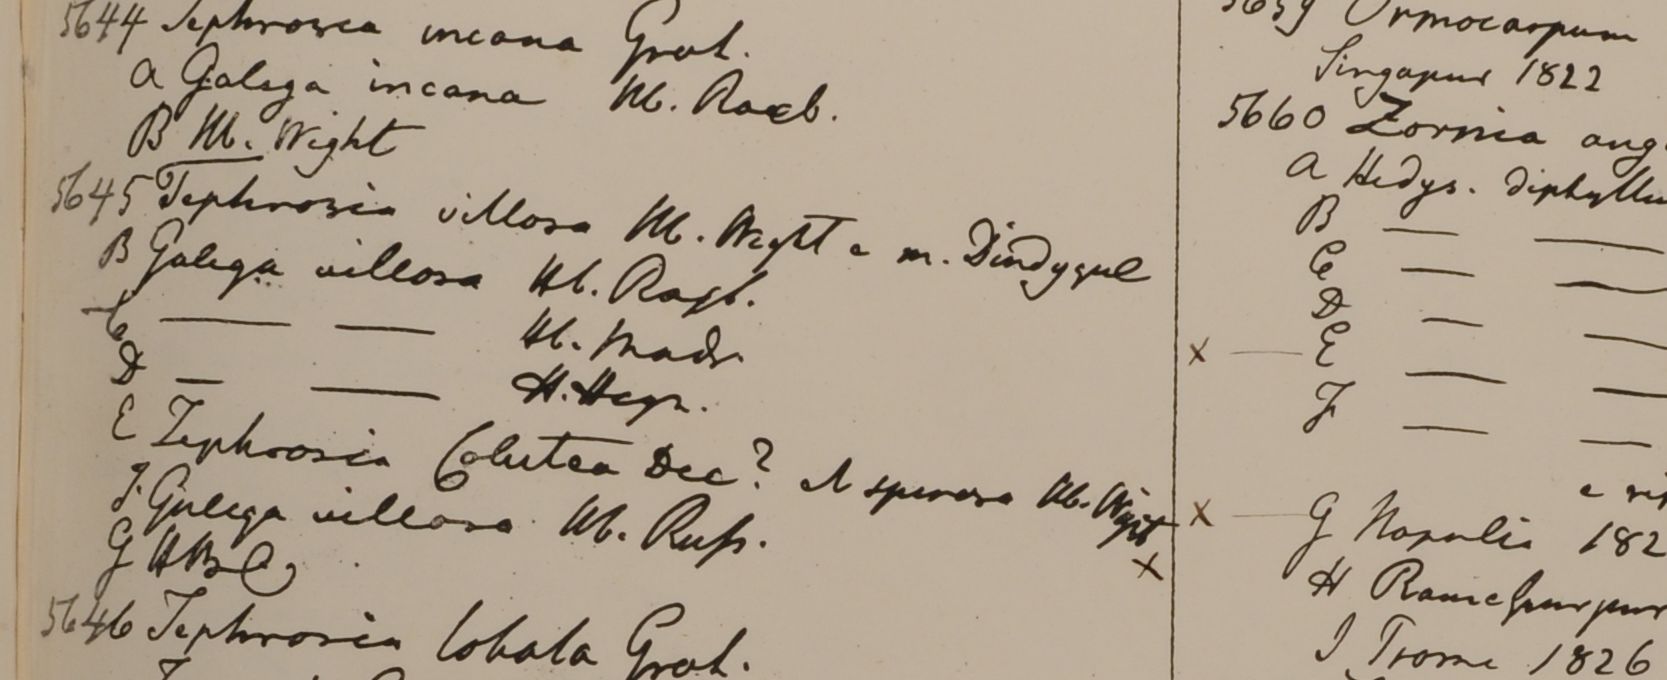 5644 Tephrosia incana Grah.
a Galega incana Hb. Roxb.
B Hb. Wight
5645 Tephrosia villosa Hb. Wight e m. Dindygul
B Galega villosa Hb. Roxb.
C — — Hb. Madr.
D — — H. Heyn.
E Tephrosia Colutea Dec? Hb. Wight
x
F. Galega villosa Hb. Russ.
G HBC
5646 Tephrosia lobata Grah.
5659 Ormocarpum
Singapur 1822
5660 Zornia ang
a Hedys. diphyllu
B — —
C — —
D — —
x — E — —
F — —
x — G Napalia 182
H
I Prome 1826